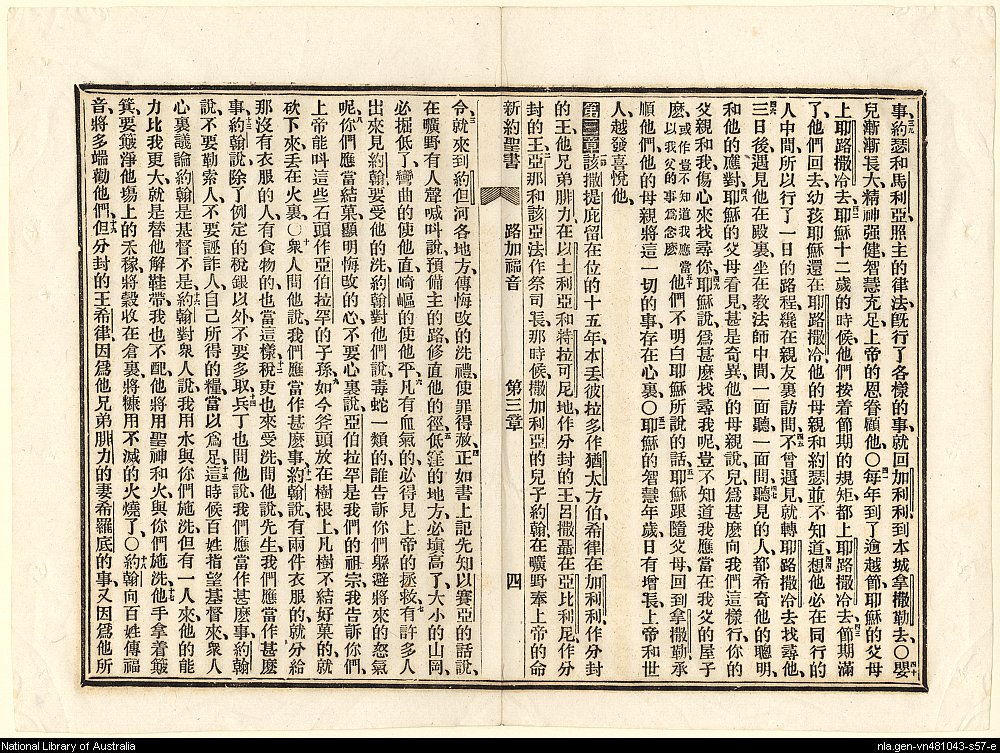 事、約瑟和馬利亞照主的律法、旣行了各樣的事、就回加利利到本城拿撒勒去、○嬰
兒漸漸長大、精神强健、智慧充足、上帝的恩眷顧他、○每年到了逾越節、耶穌的父母
上耶路撒冷去、耶穌十二歲的時候、他們按着節期的規矩、都上耶路撒冷去、節期滿
了、他們回去、幼孩耶穌還在耶路撒冷、他的母親和約瑟並不知道、想他必在同行的
人中間、所以行了一日的路程、纔在親友裏訪問、不曾遇見、就轉耶路撒冷去找尋他、
三日後、遇見他在殿裏、坐在教法師中間、一面聽、一面問、聽見的人、都希奇他的聰明、
和他的應對、耶穌的父母看見、甚是奇異、他的母親說、兒爲甚麽向我們這樣行、你的
父親和我、傷心來找尋你、耶穌說、爲甚麽找尋我呢、豈不知道我應當在我父的屋子
麽、或作豈不知道我應當以我父的事爲念麽他們不明白耶穌所說的話、耶穌跟隨父母、回到拿撒勒、承
順他們、他的母親將這一切的事、存在心裏、○耶穌的智慧年歲、日有增長、上帝和世
人越發喜悅他、
第三章該撒提庇留在位的十五年、本丟彼拉多作猶太方伯、希律在加利利作分封
的王、他兄弟腓力、在以土利亞和特拉可尼地作分封的王、呂撒聶在亞比利尼作分
封的王、亞那和該亞法作祭司長、那時候、撒加利亞的兒子約翰、在曠野奉上帝的命
新約聖書 路加福音 第三章 四
令、就來到約但河各地方、傳悔改的洗禮、使罪得赦、正如書上記先知以賽亞的話說、
在曠野有人聲喊叫說、預備主的路、修直他的徑、低窪的地方、必填高了、大小的山岡、
必掘低了、彎曲的使他直、崎嶇的使他平、凡有血氣的、必得見上帝的拯救、有許多人
出來見約翰、要受他的洗、約翰對他們說、毒蛇一類的、誰告訴你們躱避將來的怒氣
呢、你們應當結菓、顯明悔改的心、不要心裏說、亞伯拉罕是我們的祖宗、我告訴你們、
上帝能呌這些石頭作亞伯拉罕的子孫、如今斧頭放在樹根上、凡樹不結好菓的、就
砍下來、丟在火裏、○衆人問他說、我們應當作甚麽事、約翰說、有兩件衣服的、就分給
那沒有衣服的人、有食物的、也當這樣、稅吏也來受洗、問他說、先生、我們應當作甚麽
事、約翰說、除了例定的稅銀以外、不要多取、兵丁也問他說、我們應當作甚麽事、約翰
說、不要勒索人、不要誣詐人、自己所得的糧、當以爲足、這時候、百姓指望基督來、衆人
心裏議論約翰是基督不是、約翰對衆人說、我用水與你們施洗、但有一人來、他的能
力比我更大、就是替他解鞋帶、我也不配、他將用聖神和火與你們施洗、他手拿着簸
箕、要簸淨他場上的禾稼、將穀收在倉裏、將糠用不滅的火燒了、○約翰向百姓傳福
音、將多端勸他們、但分封的王希律、因爲他兄弟腓力的妻希羅底的事、又因爲他所
National Library of Australia
nla.gen-vn481043-s57-e